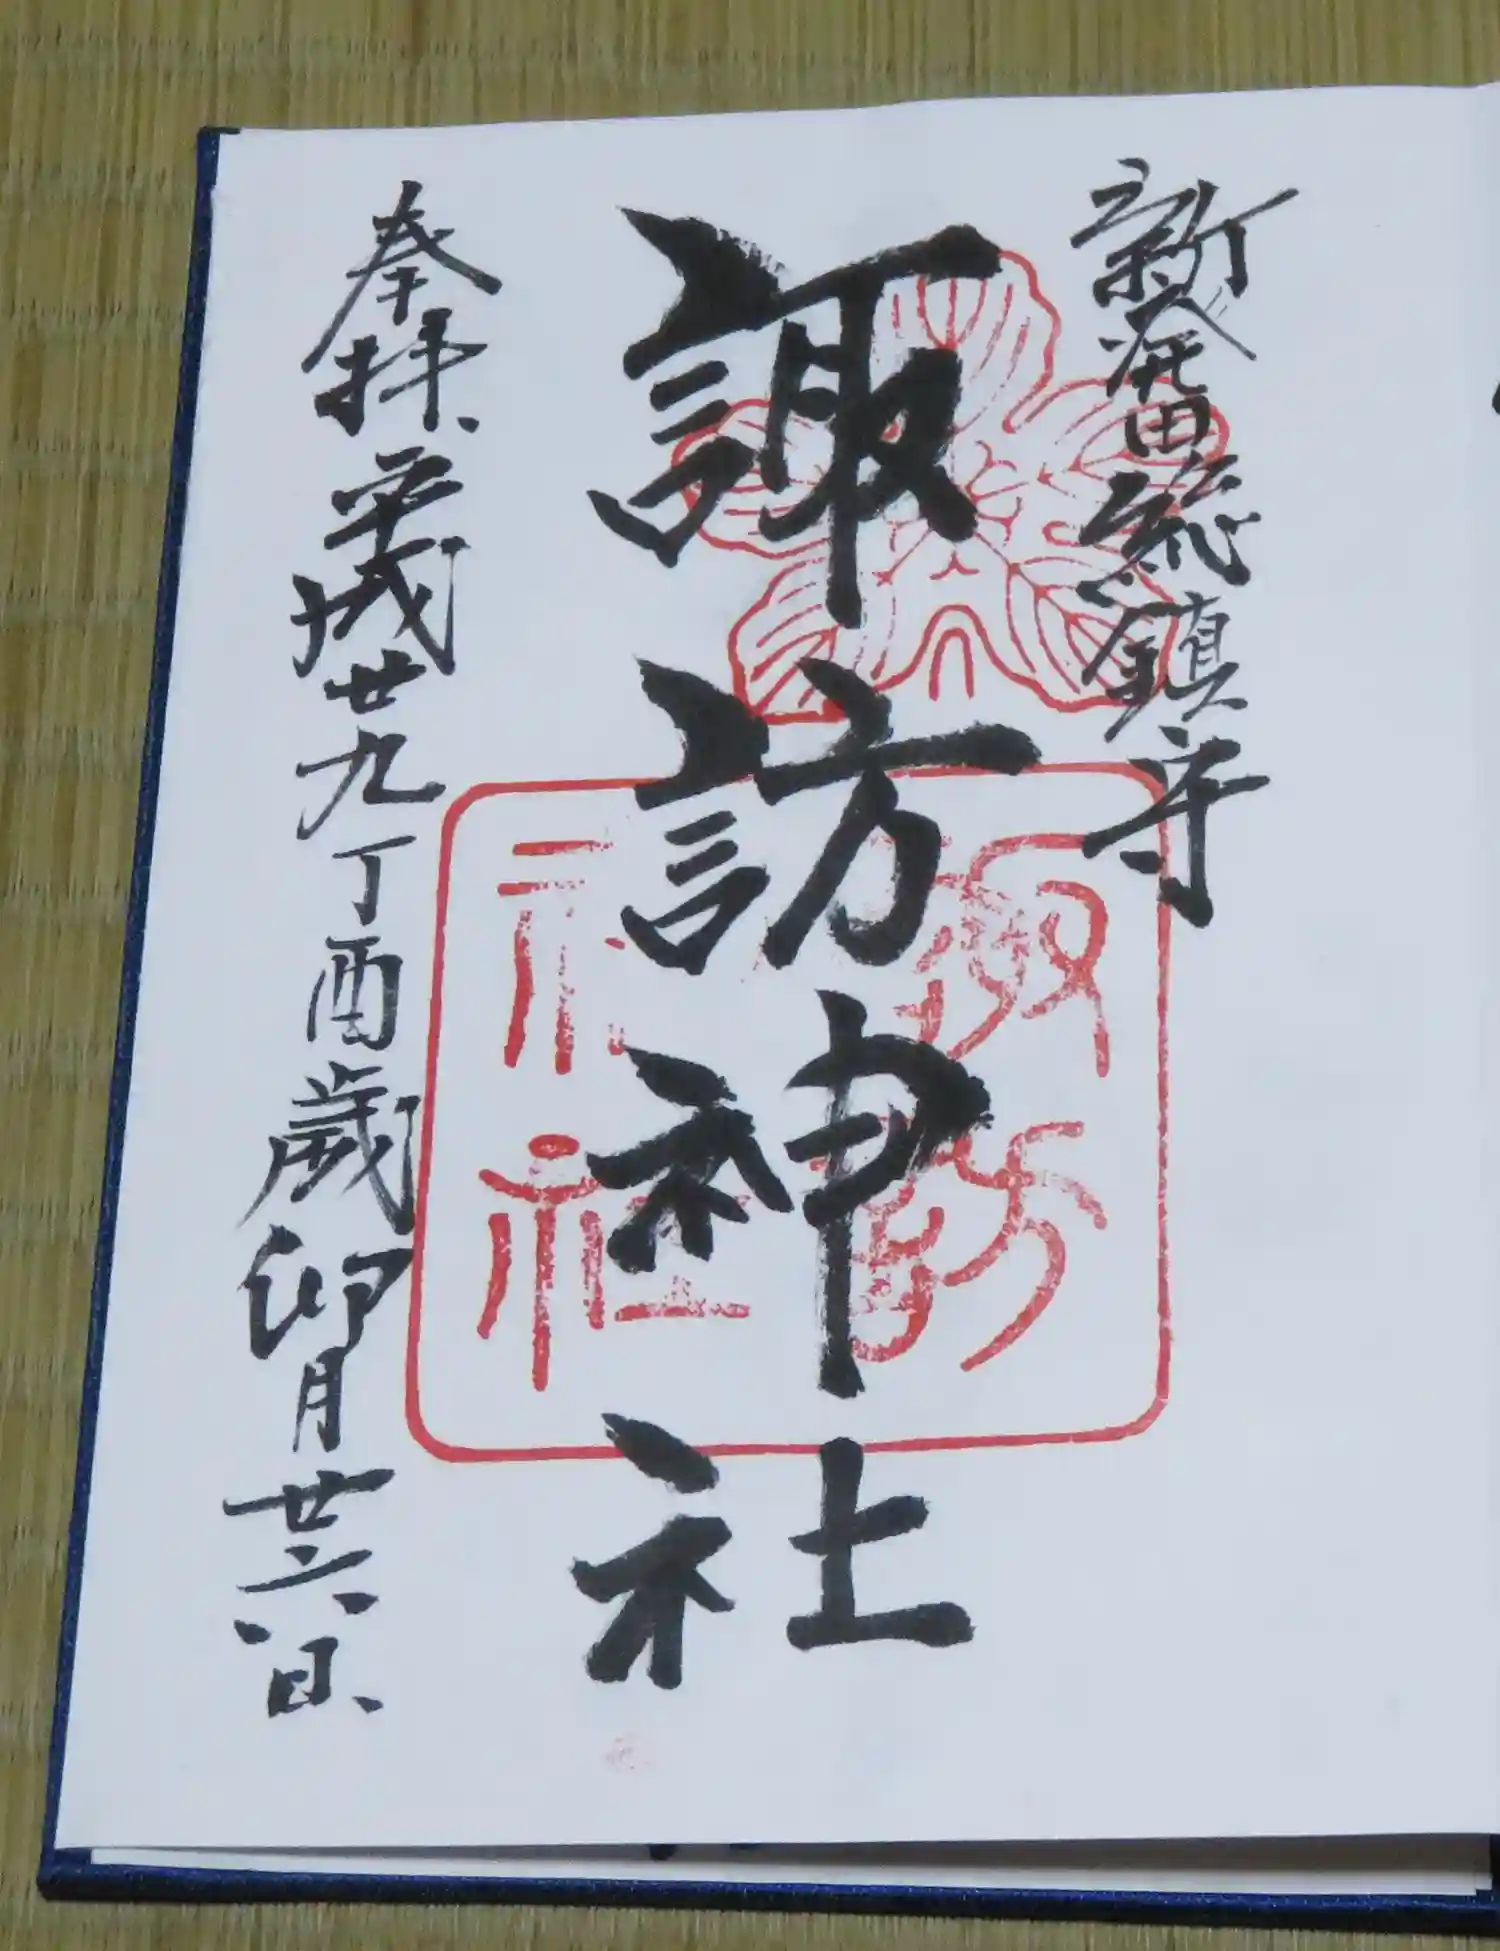 新発田総鎮守
諏訪神社
奉拝 平成廿九丁酉歳卯月廿六日
諏訪
神社